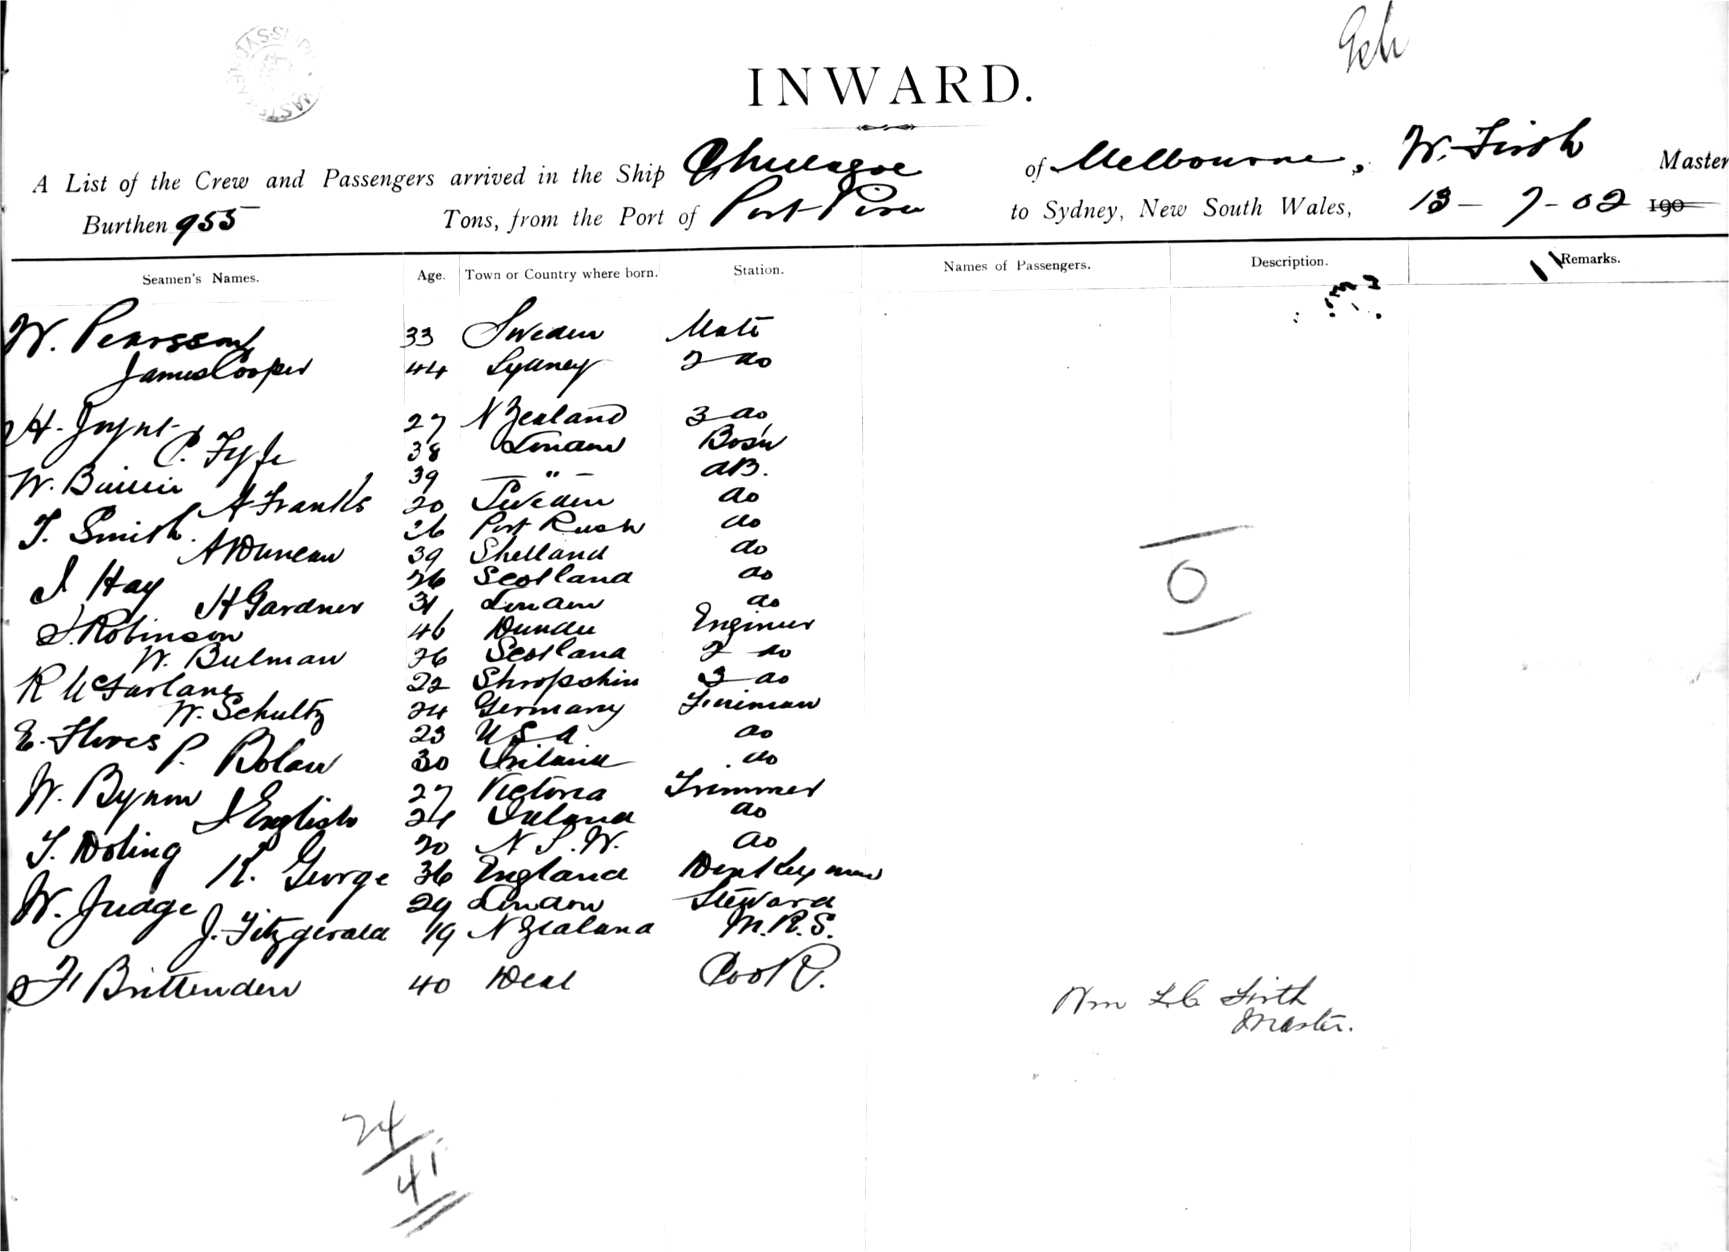 INWARD.
A List of the Crew and Passengers arrived in the Ship Chillagoe of Melbourne, W. Firth Master
Burthen 955 Tons, from the Port of Port Pirie to Sydney, New South Wales, 13-7-02 190
Seamen's Names. Age. Town or Country where born. Station. Names of Passengers. Description. Remarks.
W. Pearsson 33 Sweden Mate
James Cooper 44 Sydney 2 do
H. Joynt 27 N Zealand 3 do
C. Fyfe 38 London Bosn
W. 39 — " — AB.
A Franks 20 Sweden do
T. Smith 26 Port Rush do
A Duncan 39 Shetland do
J Hay 26 Scotland do
H Gardner 31 London do
J. Robinson 46 Dundee Engineer
W. Bulman 26 Scotland 2 do
R McFarlane 22 Shropshire 3 do
W. Schultz 24 Germany Fireman
E. Flores 23 USA do
P. Bolan 30 Ireland do
W. Bynon 27 Victoria Trimmer
J English 24 Ireland do
T. Doling 20 N S. W. do
R. George 36 England Donkeyman
W. Judge 29 London Steward
J. Fitzgerald 19 N Zealand M.R.S.
F Brittenden 40 Deal Cook.
O
Wm Firth
Master.
24
41